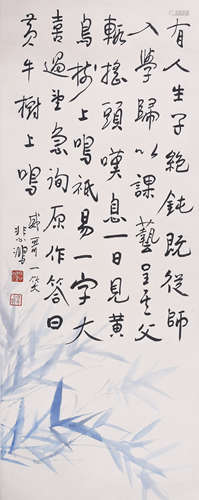 有人生子絶鈍既從師
入學歸以課藝呈其父
輒搖頭嘆息一日見黃
鳥樹上鳴祇易一字大
喜過望急詢原作答曰
黃牛樹上鳴
哥一笑
悲鴻